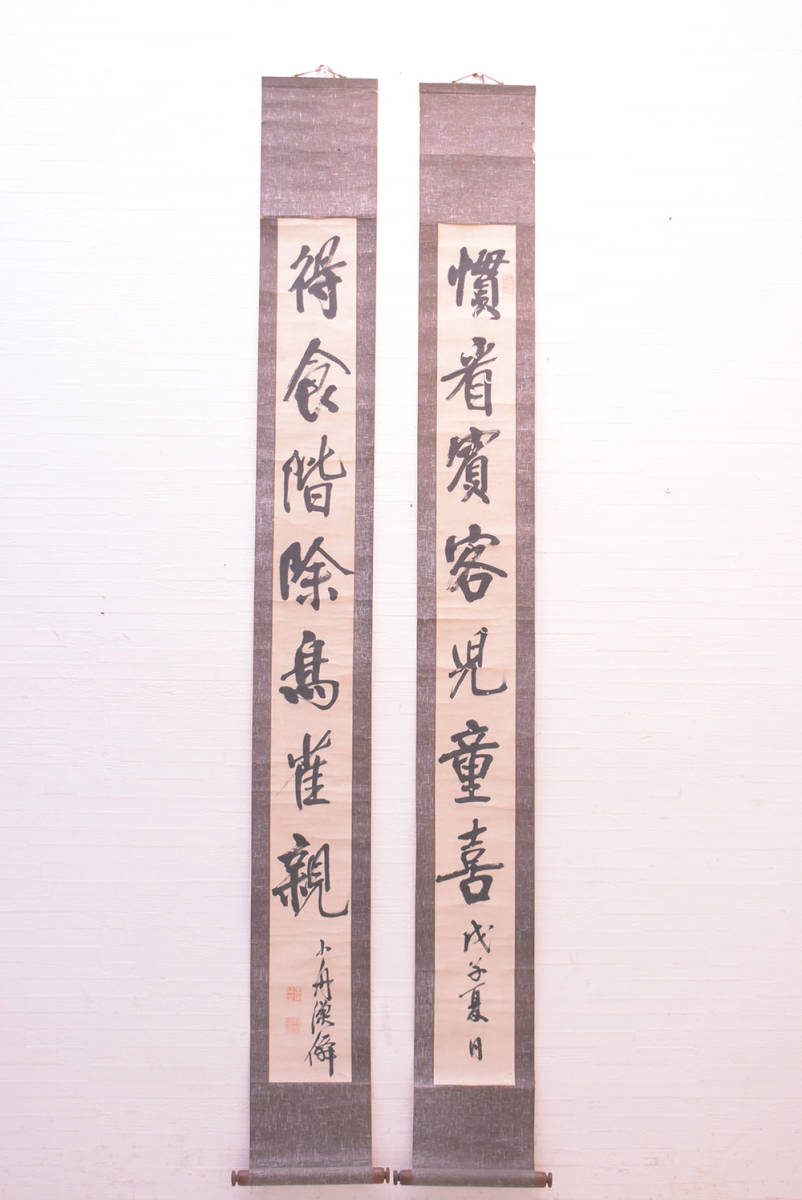 慣看賓客児童喜
戊子夏日
得食階除鳥雀親
小舟